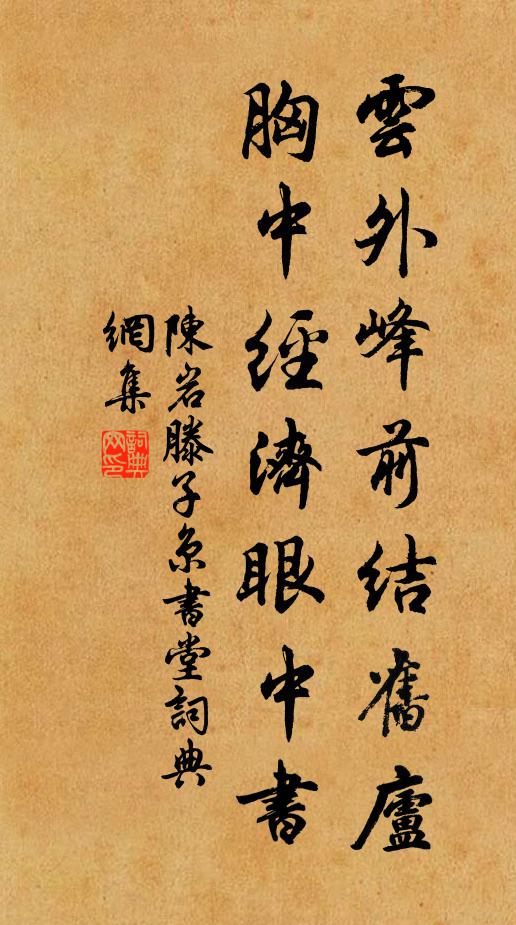 雲外峰前結舊廬
胸中經濟眼中書
陳岩滕子京書堂詞典
網集
詞典
网印